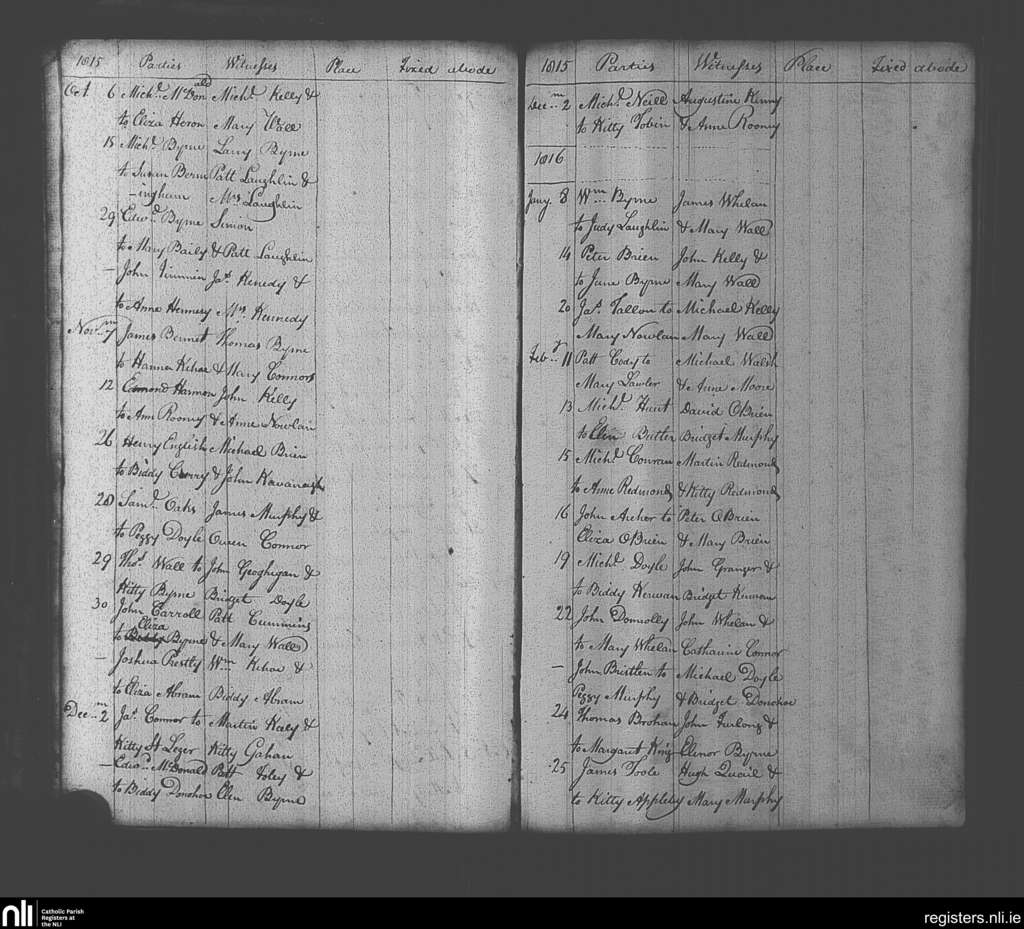 1815 Parties Witnesses Place Fixed abode
Oct 6 Mich.l McDonald Mich.l Kelly &
to Eliza Heron Mary Wall
15 Mich.l Byrne Larry Byrne
to Susan Berm Patt Laughlin &
-ingham Mrs Laughlin
29 Edw.d Byrne Simon
to Mary Baily & Patt Laughlin
- John Timmin Jas. Kenedy &
to Anne Hennesy Mrs Kennedy
Nov.m 7 James Bennet Thomas Byrne
to Hanna Kehoe & Mary Connors
12 Edmond Harmon John Kelly
to Ann Roony & Anne Nowlan
26 Henry English Michael Brien
to Biddy Corry & John Kavanagh
28 Sam.l Oaks James Murphy &
to Peggy Doyle Owen Connor
29 Thos. Wall to John Geoghigan &
Kitty Byrne Bridget Doyle
30 John Carroll Patt Cummins
Eliza
to Biddy Byrne & Mary Wall
- Joshua Prestly Wm Kehoe &
to Eliza Abram Biddy Abram
Dec.m 2 Jas. Connor to Martin Kaly &
Kitty St Leger Kitty Gahan
- Edw.d McDonald Patt Foley &
to Biddy Donohoe Elen Byrne
1815 Parties Witnesses Place Fixed abode
Dec.m 2 Mich.l Neill Augustine Kenny
to Kitty Tobin & Anne Roony
1816
Jany. 8 Wm. Byrne James Whelan
to Judy Laughlin & Mary Wall
14 Peter Brien John Kelly &
to June Byrne Mary Wall
20 Jas. Tallon to Michael Kelly
Mary Nowlan Mary Wall
Feb.y 11 Patt Cody to Michael Walsh
Mary Lawler & Anne Moore
13 Mich.l Hunt David OBrien
to Elen Butler Bridget Murphy
15 Mich.l Conran Martin Redmond
to Anne Redmond & Kitty Redmond
16 John Archer to Peter OBrien
Eliza OBrien & Mary Brien
19 Mich.l Doyle John Granger &
to Biddy Kerwan Bridget Kerwan
22 John Donnolly John Whelan &
to Mary Whelan Catharin Connor
- John Bristlen to Michael Doyle
Peggy Murphy & Bridget Donohoe
24 Thomas Brohan John Furlong &
to Margaret King Elinor Byrne
25 James Toole Hugh Quail &
to Kitty Appleby Mary Murphy
nli Catholic Parish
Registers at
the NLI
registers.nli.ie